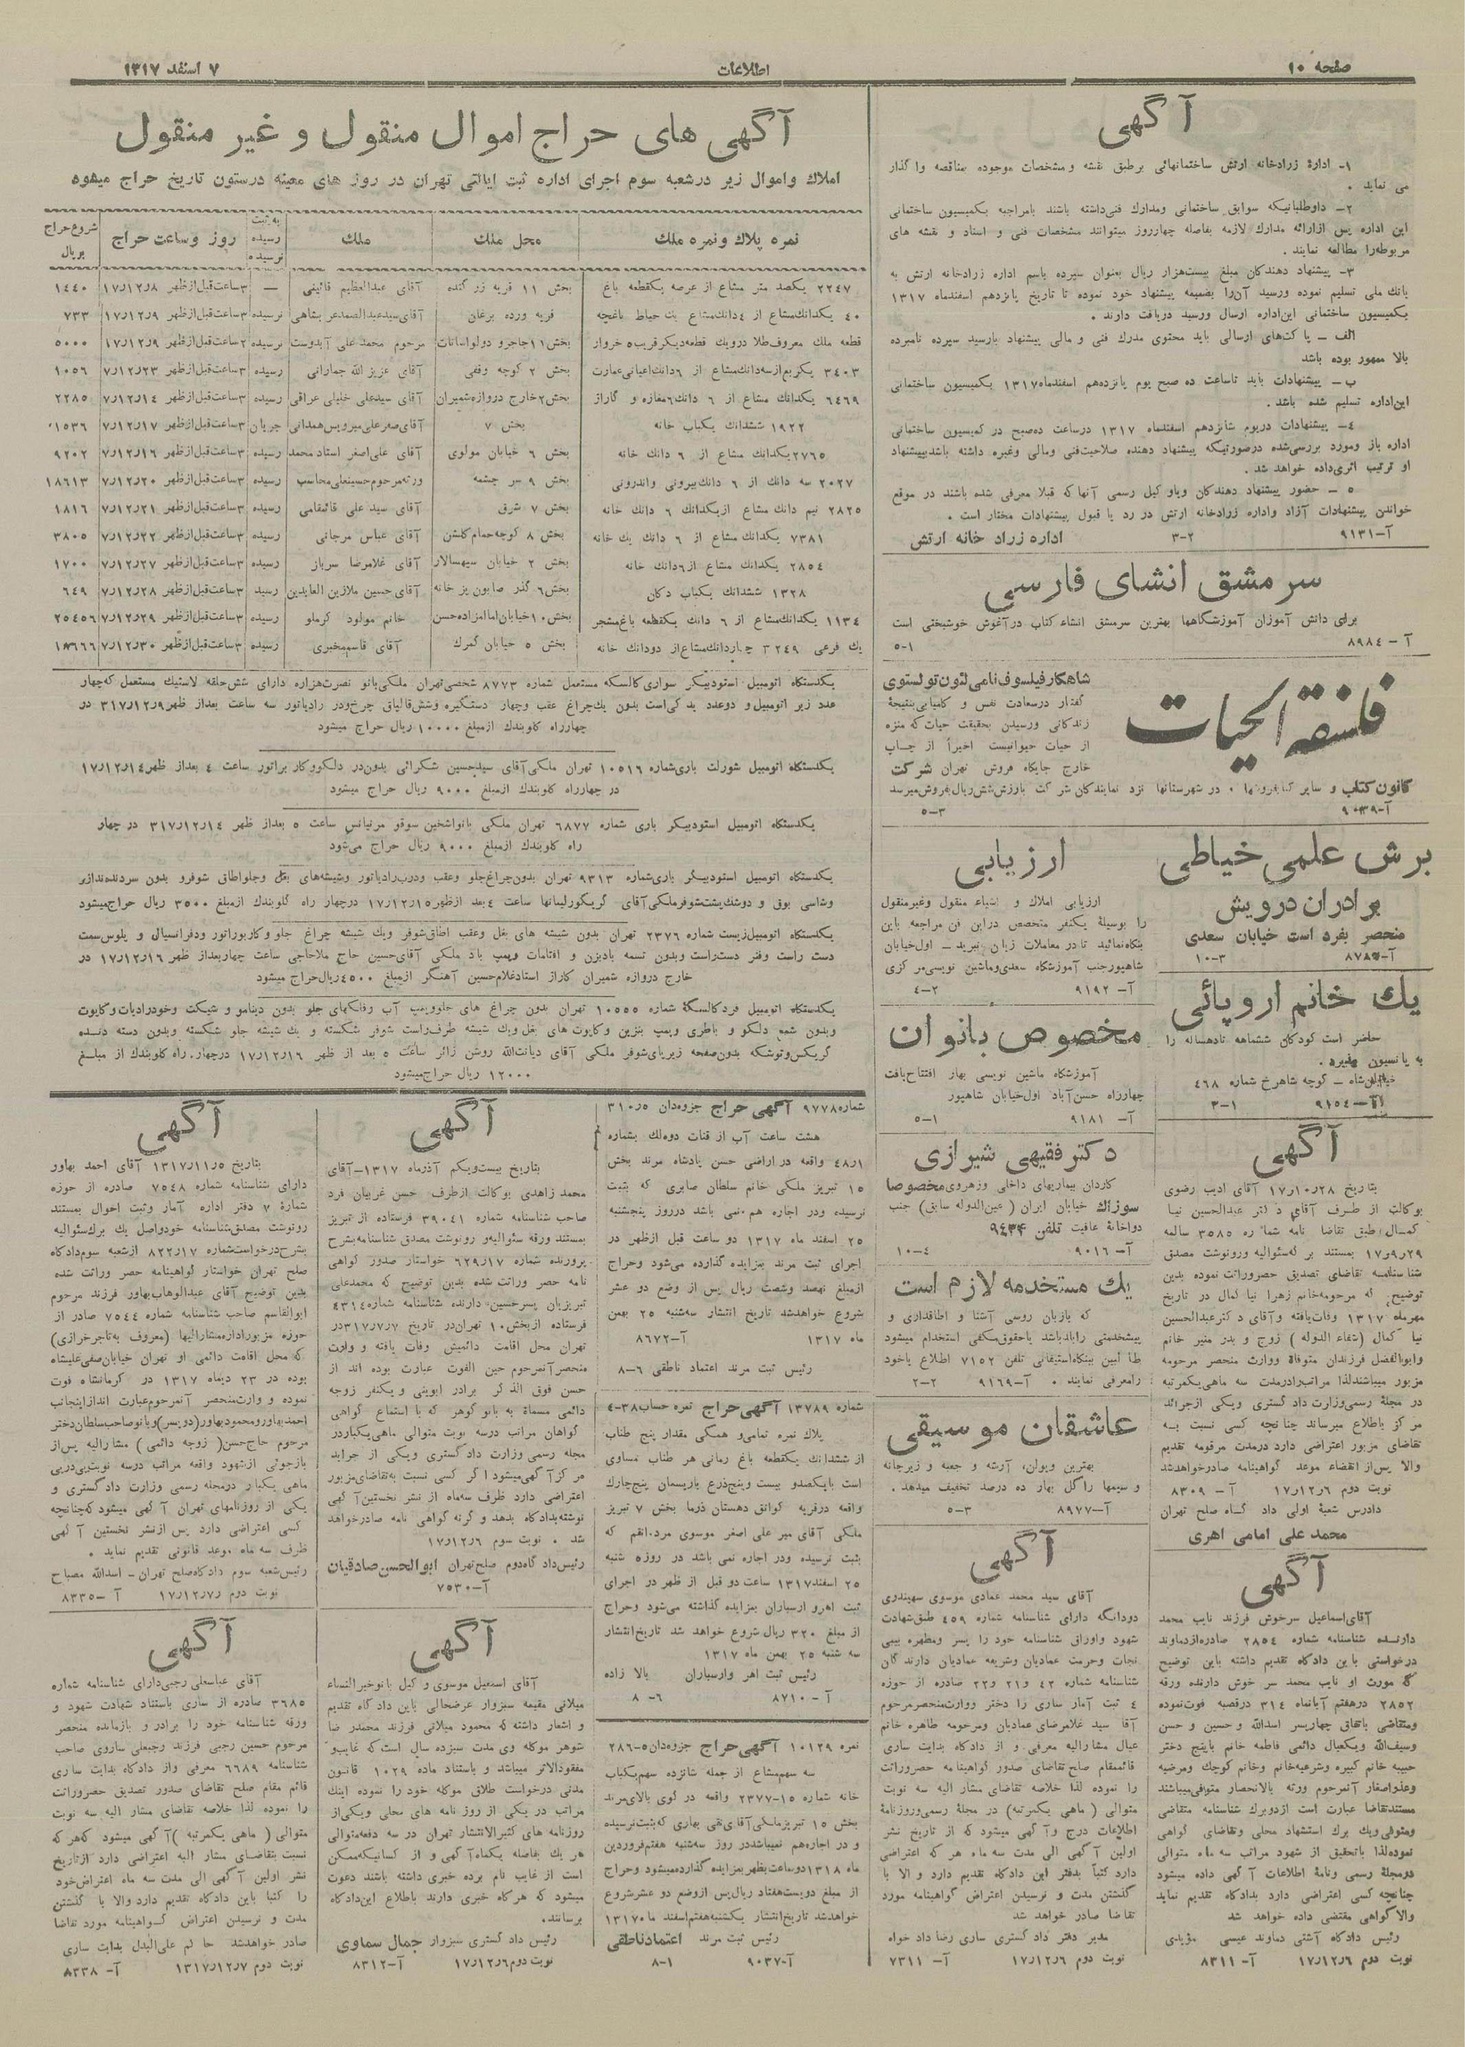 صفحه ۱۰
اطلاعات
۷ اسفند ۱۳۱۷
آگهی
۱- ادارهٔ زرادخانه ارتش ساختمانهائی برطبق نقشه و مشخصات موجوده مناقصه واگذار
می نماید .
۲- داوطلبانیکه سوابق ساختمانی ومدارك فنی‌داشته باشند بامراجعه بکمیسیون ساختمانی
این اداره پس ازارائه مدارك لازمه بفاصله چهارروز میتوانند مشخصات فنی و اسناد و نقشه های
مربوطه‌را مطالعه نمایند .
۳- پیشنهاد دهندگان مبلغ بیست‌هزار ریال بعنوان سپرده باسم اداره زرادخانه ارتش به
بانك ملی تسلیم نموده ورسید آن‌را بضمیمه پیشنهاد خود نموده تا تاریخ پانزدهم اسفندماه ۱۳۱۷
بکمیسیون ساختمانی این‌اداره ارسال ورسید دریافت دارند .
الف - پاکت‌های ارسالی باید محتوی مدرك فنی و مالی پیشنهاد بارسید سپرده نامبرده
بالا ممهور بوده باشد
ب- پیشنهادات باید تاساعت ده صبح یوم پانزدهم اسفندماه ۱۳۱۷ بکمیسیون ساختمانی
این‌اداره تسلیم شده باشد .
۴- پیشنهادات دریوم شانزدهم اسفندماه ۱۳۱۷ درساعت ده‌صبح در کمیسیون ساختمانی
اداره باز ومورد بررسی‌شده درصورتیکه پیشنهاد دهنده صلاحیت‌فنی ومالی وغیره داشته باشدبپیشنهاد
او ترتیب اثری‌داده خواهد شد .
۵ - حضور پیشنهاد دهندگان ویاوکیل رسمی آنهاکه قبلا معرفی شده باشند در موقع
خواندن پیشنهادات آزاد واداره زرادخانه ارتش در رد یا قبول پیشنهادات مختار است .
آ-۹۱۳۱ ۲-۳ اداره زراد خانه ارتش
سرمشق انشای فارسی
برای دانش آموزان آموزشگاهها بهترین سرمشق انشاء کتاب درآغوش خوشبختی است
آ - ۸۹۸۴ ۱-۵
فلسفة الحیات
شاهکارفیلسوف‌نامی لئون‌تولستوی
گفتار درسعادت نفس و کامیابی‌بنتیجهٔ
زندکانی ورسیدن بحقیقت حیات‌که منزه
از حیات حیوانیست اخیراً از چاپ
خارج جایگاه فروش تهران شرکت
کانون‌کتاب و سایر کتابفروشها ۰ در شهرستانها نزد نمایندکان شرکت بارزش‌شش‌ریال‌بفروش‌میرسد
آ-۹۰۳۹ ۳-۵
برش علمی خیاطی
برادران درویش
منحصر بفرد است خیابان سعدی
۳-۱۰
یك خانم اروپائی
حاضر است کودکان ششماهه تاده‌ساله را
به پانسیون بپذیرد .
خیابان‌شاه - کوچه شاهرخ شماره ۴۶۸
آ-۹۱۵۴ ۱-۳
ارزیابی
ارزیابی املاك و اشیاء منقول وغیرمنقول
را بوسیلهٔ یکنفر متخصص دراین فن مراجعه باین
بنگاه‌نمائید تادر معاملات زیان نبرید - اول‌خیابان
شاهپورجنب آموزشگاه سعدی‌وماشین نویسی‌مرکزی
آ- ۹۱۹۲ ۲-۴
مخصوص بانوان
آموزشگاه ماشین نویسی بهار افتتاح‌یافت
چهارراه حسن‌آباد اول‌خیابان شاهپور
آ- ۹۱۸۱ ۱-۵
دکتر فقیهی شیرازی
کاردان بیماریهای داخلی وزهروی مخصوصا
سوزاك خیابان ایران (عین‌الدوله سابق) جنب
دواخانهٔ عافیت تلفن ۹۴۳۴
آ- ۹۰۱۶ ۴-۱۰
یك مستخدمه لازم است
که بازبان روسی آشنا و اطاقداری و
پیشخدمتی رابلدباشد باحقوق‌مکفی استخدام میشود
طالبین ببنگاه‌استیفانی تلفن ۷۱۵۲ اطلاع یاخود
رامعرفی نمایند . آ-۹۱۶۹ ۲-۲
عاشقان موسیقی
بهترین ویولن، آرشه و جعبه و زیرچانه
و سیمها راگل بهار ده درصد تخفیف میدهد .
آ-۸۹۷۷ ۳-۵
آگهی
بتاریخ ۱۷ر۱۰ر۲۸ آقای ادیب رضوی
بوکالت از طرف آقای دکتر عبدالحسین نیا
کمال طبق تقاضا نامه شماره ۳۵۸۵ سالمه
۱۷ر۹ر۲۹ بمستند برگه‌سئوالیه ورونوشت مصدق
شناسنامه تقاضای تصدیق حصروراثت نموده بدین
توضیح، که مرحومه‌خانم زهرا نیا کمال در تاریخ
مهرماه ۱۳۱۷ وفات‌یافته وآقای دکترعبدالحسین
نیا کمال (شفاء الدوله) زوج و بدر منیر خانم
وابوالفضل فرزندان متوفاة ووارث منحصر مرحومه
مزبور میباشندلذا مراتب‌برادرمدت سه ماهی‌یکمرتبه
در مجلهٔ رسمی‌وزارت داد گستری ویکی ازجرائد
مرکز باطلاع میرساند چنانچه کسی نسبت به
تقاضای مزبور اعتراضی دارد درمدت مرقومه تقدیم
والا پس‌از انقضاء موعد گواهینامه صادرخواهدشد
نوبت دوم ۱۷ر۱۲ر۶ آ - ۸۳۰۹
دادرس شعبهٔ اولی داد گاه صلح تهران
محمد علی امامی اهری
آگهی
آقای‌اسماعیل سرخوش فرزند نایب محمد
دارنده شناسنامه شماره ۲۸۵۴ صادره‌ازدماوند
درخواستی باین دادکاه تقدیم داشته باین توضیح
که مورث او نایب محمد سر خوش دارنده ورقه
۲۸۵۲ درهفتم آبانماه ۳۱۴ درقصبه فوت‌نموده
ومتقاضی باتفاق چهارپسر اسدالله وحسین و حسن
وسیف‌الله ویکعیال دائمی فاطمه خانم باپنج دختر
حبیبه خانم کبیره وشرعیه‌خانم وخانم کوچك ومرضیه
وعذرا صغار آنمرحوم ورثه بالانحصار متوفی‌میباشند
مستندتقاضا عبارت است ازدوبرك شناسنامه متقاضی
ومتوفی‌ویك برك استشهاد محلی وتقاضای گواهی
نموده‌لذا باتحقیق از شهود مراتب سه ماه متوالی
درمجلهٔ رسمی ونامهٔ اطلاعات آگهی داده میشود
چنانچه کسی اعتراضی دارد بدادکاه تقدیم نماید
والاگواهی مقتضی داده خواهد شد
رئیس دادکاه آشتی دماوند عیسی مؤیدی
نوبت دوم ۱۷ر۱۲ر۶ آ- ۸۳۱۱
آگهی
آقای سید محمد عمادی موسوی سهیندری
دودانگه دارای شناسنامه شماره ۴۵۹ طبق‌شهادت
شهود واوراق شناسنامه خود را پسر ومطهره بیبی
نجات وحرمت عمادیان وشریفه عمادیان دارندگان
شناسنامه شماره ۴۲ و۲۱ و۲۲ صادره از حوزه
۴ ثبت آمار ساری را دختر ووارث‌منحصرمرحوم
آقا سید غلامرضای عمادیان ومرحومه طاهره خانم
عیال مشارالیه معرفی و از دادکاه بدایت ساری
قائممقام صلح تقاضای صدور گواهینامه حصروراثت
را نموده لذا خلاصه تقاضای مشار الیه سه نوبت
متوالی ( ماهی یکمرتبه) در مجلهٔ رسمی‌وروزنامهٔ
اطلاعات درج وآگهی میشود که از تاریخ نشر
اولین آگهی الی مدت سه ماه هر که اعتراضی
دارد کتباً بدفتر این دادکاه تقدیم دارد و الا با
گذشتن مدت و نرسیدن اعتراض گواهینامه مورد
تقاضا صادر خواهد شد
مدیر دفتر داد گستری ساری رضا داد خواه
نوبت دوم ۱۷ر۱۲ر۶ آ- ۷۳۱۱
آگهی های حراج اموال منقول و غیر منقول
املاك واموال زیر درشعبه سوم اجرای اداره ثبت ایالتی تهران در روز های معینه درستون تاریخ حراج میشود
نمره پلاك ونمره ملك | محل ملك | ملك | به ثبت رسیده نرسیده | روز وساعت حراج | شروع حراج بریال
۲۲۴۷ یکصد متر مشاع از عرصه یکقطعه باغ | بخش ۱۱ قریه زرگنده | آقای عبدالعظیم قائینی | — | ۳ساعت‌قبل‌ازظهر ۱۷ر۱۲ر۸ | ۱۴۴۰
۴۰ یکدانك‌مشاع از ۴دانك‌مشاع یك حیاط باغچه | قریه ورده برغان | آقای‌سیدعبدالصمدعربشاهی | نرسیده | ۳ساعت‌قبل‌ازظهر ۱۷ر۱۲ر۹ | ۷۳۳
قطعه ملك معروف‌طلا درویك قطعه‌دیگرقریب۵ خروار | بخش۱۱جاجرو دولواسانات | مرحوم محمد علی آبدوست | نرسیده | ۲ساعت‌قبل‌ازظهر ۱۷ر۱۲ر۹ | ۵۰۰۰
۳۴۰۳ یکربع‌ازسه‌دانك‌مشاع از ۶دانك‌اعیانی‌عمارت | بخش ۲ کوچه وقفی | آقای عزیز الله جمارانی | رسیده | ۳ساعت‌قبل‌ازظهر ۷ر۱۲ر۲۳ | ۱۰۵۶
۶۴۶۹ یکدانك مشاع از ۶ دانك۶مغازه و گاراژ | بخش۲خارج دروازه‌شمیران | آقای سیدعلی خلیلی عراقی | رسیده | ۳ساعت‌قبل‌ازظهر ۷ر۱۲ر۱۴ | ۲۲۸۵
۱۹۲۲ ششدانك یکباب خانه | بخش ۷ | آقای‌صفرعلی‌میرویس‌همدانی | جریان | ۳ساعت‌قبل‌ازظهر ۷ر۱۲ر۱۷ | ۱۵۳۶
۲۷۶۵یکدانك مشاع از ۶ دانك خانه | بخش ۶ خیابان مولوی | آقای علی‌اصغر استاد محمد | رسیده | ۳ساعت‌قبل‌ازظهر ۷ر۱۲ر۱۶ | ۹۲۰۲
۲۰۲۷ سه دانك از ۶ دانك‌بیرونی واندرونی | بخش ۹ سر چشمه | ورثه‌مرحوم‌حسینعلی‌محاسب | رسیده | ۳ساعت‌قبل‌ازظهر ۷ر۱۲ر۲۰ | ۱۸۶۱۳
۲۸۲۵ نیم دانك مشاع ازیکدانك ۶ دانك خانه | بخش ۷ شرق | آقای سید علی قائمقامی | رسیده | ۳ساعت‌قبل‌ازظهر ۷ر۱۲ر۲۱ | ۱۸۱۶
۷۳۸۱ یکدانك مشاع از ۶ دانك یك خانه | بخش ۸ کوچه‌حمام‌گلشن | آقای عباس مرجانی | رسیده | ۳ساعت‌قبل‌ازظهر ۷ر۱۲ر۲۲ | ۳۸۰۵
۲۸۵۴ یکدانك مشاع از۶دانك خانه | بخش ۲ خیابان سپهسالار | آقای غلامرضا سرباز | رسیده | ۳ساعت‌قبل‌ازظهر ۷ر۱۲ر۲۷ | ۱۷۰۰
۱۳۲۸ ششدانك یکباب دکان | بخش۶ گذر صابون پز خانه | آقای حسین ملازین العابدین | رسید | ۳ساعت‌قبل‌ازظهر ۷ر۱۲ر۲۸ | ۶۴۹
۱۱۳۴ یکدانك‌مشاع از ۶ دانك یکقطعه باغ‌مشجر | بخش۱۰خیابان‌امامزاده‌حسن | خانم مولود کرملو | رسیده | ۳ساعت‌قبل‌ازظهر ۱۷ر۱۲ر۲۹ | ۲۵۴۵۶
یك فرعی ۳۲۴۹ چهاردانك‌مشاع‌از دودانك خانه | بخش ۵ خیابان گمرك | آقای قاسم‌مخبری | رسیده | ۳ساعت‌قبل‌ازظهر ۷ر۱۲ر۳۰
یکدستگاه اتومبیل استودبیکر سواری‌کالسکه مستعمل شماره ۸۷۷۳ شخصی‌تهران ملکی‌بانو نصرت‌هزاره دارای شش‌حلقه لاستیك مستعمل که‌چهار
عدد زیر اتومبیل و دوعدد یدکی‌است بدون یك‌چراغ عقب وچهار دستگیره وشش‌قالپاق چرخ‌ودر رادیاتور سه ساعت بعداز ظهر۳۱۷ر۱۲ر۹ در
چهارراه کلوبندك ازمبلغ ۱۰۰۰۰ ریال حراج میشود
یکدستگاه اتومبیل شورلت باری‌شماره ۱۰۵۱۶ تهران ملکی‌آقای سیدحسین شکرائی بدون‌در دلکووکاربراتور ساعت ۴ بعداز ظهر۱۷ر۱۲ر۱۴
در چهارراه کلوبندك ازمبلغ ۹۰۰۰ ریال حراج میشود
یکدستگاه اتومبیل استودبیکر باری شماره ۶۸۷۷ تهران ملکی بانواشخین سوقو مرنیانس ساعت ۵ بعداز ظهر ۳۱۷ر۱۲ر۱۴ در چهار
راه کلوبندك ازمبلغ ۹۰۰۰ ریال حراج می‌شود
یکدستگاه اتومبیل استودبیکر باری‌شماره ۹۳۱۳ تهران بدون‌چراغ‌جلو وعقب ودرب‌رادیاتور وشیشه‌های بغل وجلواطاق شوفرو بدون سردنده‌نداژی
وشاسی بوق و دوشك‌پشت‌شوفرملکی‌آقای گریکورلیمانها ساعت ۴بعد ازظهر۱۷ر۱۲ر۱۵ درچهار راه کلوبندك ازمبلغ ۳۵۰۰ ریال حراج‌میشود
یکدستگاه اتومبیل‌زیست شماره ۲۳۷۶ تهران بدون شیشه های بغل وعقب اطاق‌شوفر ویك شیشه چراغ جلو وکاربوراتور ودفرانسیال و پلوس‌سمت
دست راست وفنر دست‌راست وبدون تسمه بادبزن و افتامات وپمپ باد ملکی آقای‌حسین حاج ملاحاجی ساعت چهاربعداز ظهر ۱۷ر۱۲ر۱۶ در
خارج دروازه شمیران کاراژ استادغلامحسین آهنگر ازمبلغ ۴۵۰۰ریال‌حراج میشود
یکدستگاه اتومبیل فردکالسگهٔ شماره ۱۰۵۵۵ تهران بدون چراغ های جلووپمپ آب وفلکهای جلو بدون دینامو و شیکت وخودرادیات وکاپوت
وبدون شمع دلکو و باطری وپمپ بنزین وکاپوت های بغل‌ویك شیشه طرف‌راست شوفر شکسته و یك شیشه جلو شکسته وبدون دسته دنده
گریکس‌وتوشکه بدون‌صفحه زیرپای‌شوفر ملکی آقای دیانت‌الله روشن زائر ساعت ۵ بعد از ظهر ۱۷ر۱۲ر۱۶ درچهار. راه کلوبندك از مبلغ
۱۲۰۰۰ ریال حراج‌میشود
شماره ۹۷۷۸ آگهی حراج جزوه‌دان ۵ر۳۱۰
هشت ساعت آب از قنات دوه‌لك بشماره
۱ر۴۸ واقعه در اراضی حسن پادشاه مرند بخش
۱۵ تبریز ملکی خانم سلطان صابری که بثبت
نرسیده ودر اجاره هم‌نمی باشد درروز پنجشنبه
۲۵ اسفند ماه ۱۳۱۷ دو ساعت قبل ازظهر در
اجرای ثبت مرند بمزایده گذارده می‌شود وحراج
ازمبلغ نهصد وشصت ریال پس از وضع دو عشر
شروع خواهدشد تاریخ انتشار سه‌شنبه ۲۵ بهمن
ماه ۱۳۱۷ آ-۸۶۷۲
رئیس ثبت مرند اعتماد ناطقی ۶-۸
شماره ۱۳۷۸۹ آگهی حراج نمره حساب ۳۸-۴
پلاك نمره تمامی‌و همکی مقدار پنج طناب
از ششدانك یکقطعه باغ رمانی هر طناب مساوی
است بایکصدو بیست وپنج‌ذرع بازیسمان پنج‌چارك
واقعه درقریه کوانق دهستان دزما بخش ۷ تبریز
ملکی آقای میر علی اصغر موسوی مردانقم که
بثبت نرسیده ودر اجاره نمی باشد در روزه شنبه
۲۵ اسفند۱۳۱۷ ساعت دو قبل از ظهر در اجرای
ثبت اهرو ارسباران بمزایده گذاشته می‌شود وحراج
از مبلغ ۳۲۰ ریال شروع خواهد شد تاریخ‌انتشار
سه شنبه ۲۵ بهمن ماه ۱۳۱۷
رئیس ثبت اهر وارسباران بالا زاده
آ - ۸۷۱۰ ۶- ۸
نمره ۱۰۱۲۹ آگهی حراج جزوه‌دان ۵-۲۸۶
سه سهم‌مشاع از جمله شانزده سهم‌یکباب
خانه شماره ۱۵-۲۳۷۷ واقعه در کوی بالای‌مرند
بخش ۱۵ تبریزملکی‌آقای‌تقی بهاری که‌بثبت‌نرسیده
و در اجاره‌هم نمیباشددر روز سه‌شنبه هفتم‌فروردین
ماه ۱۳۱۸دوساعت‌بظهربمزایده گذاردهمیشود وحراج
از مبلغ دویست‌هفتاد ریال‌پس ازوضع دو عشرشروع
خواهدشد تاریخ‌انتشار یکشنبه‌هفتم‌اسفند ماه۱۳۱۷
رئیس ثبت مرند اعتمادناطقی
آ-۹۰۳۷ ۱-۸
آگهی
بتاریخ بیست‌ویکم آذرماه ۱۳۱۷-آقای
محمد زاهدی بوکالت ازطرف حسن غریبان فرد
صاحب شناسنامه شماره ۳۹۰۴۱ فرستاده از تبریز
بمستند ورقه سئوالیه‌و رونوشت مصدق شناسنامه‌بشرح
پرونده شماره ۶۲۹ر۱۷ خواستار صدور گواهی
نامه حصر وراثت شده بدین توضیح که محمدعلی
تبریزیان پسرحسین دارنده شناسنامه شماره ۴۳۱۴
فرستاده ازبخش۱۰ تهران‌در تاریخ ۷ر۷ر۱۷در
تهران محل اقامت دائمیش وفات یافته و وارث
منحصرآنمرحوم حین الفوت عبارت بوده اند از
حسن فوق الذکر برادر ابوینی و یکنفر زوجه
دائمی مسماة به بانو گوهر که با استماع گواهی
گواهان مراتب درسه نوبت متوالی ماهی‌یکباردر
مجله رسمی وزارت داد گستری ویکی از جراید
مرکز آگهی‌میشود اگر کسی نسبت به‌تقاضای‌مزبور
اعتراضی دارد ظرف سه‌ماه از نشر نخستین‌آگهی
نوشته‌بدادکاه بدهد و گرنه گواهی نامه صادرخواهد
شد . نوبت سوم ۱۷ر۱۲ر۶
رئیس‌داد گاه‌دوم صلح تهران ابوالحسن صادقیان
آ-۷۵۳۰
آگهی
آقای اسمعیل موسوی و کیل بانوخیرالنساء
میلانی مقیمه سبزوار عرضحالی باین دادکاه تقدیم
و اشعار داشته که محمود میلانی فرزند محمدرضا
شوهر موکله وی مدت سیزده سال است که غایب‌و
مفقودالاثر میباشد و باستناد ماده ۱۰۲۹ قانون
مدنی درخواست طلاق موکله خود را نموده اینك
مراتب در یکی از روز نامه های محلی ویکی‌از
روزنامه های کثیرالانتشار تهران در سه دفعه‌متوالی
هر یك بفاصله یکماه‌آگهی و از کسانیکه‌ممکن
است از غایب نام برده خبری داشته باشند دعوت
میشود که هرکاه خبری دارند باطلاع این‌دادکاه
برسانند.
رئیس داد گستری سبزوار جمال سماوی
نوبت دوم ۱۷ر۱۲ر۶ آ-۸۳۱۲
آگهی
بتاریخ ۵ر۱۱ر۱۳۱۷ آقای احمد بهاور
دارای شناسنامه شماره ۷۵۴۸ صادره از حوزه
شمارهٔ ۷ دفتر اداره آمار وثبت احوال بمستند
رونوشت مصدق‌شناسنامه خودواصل یك برك‌سئوالیه
بشرح‌درخواست‌شماره ۸۲۲ر۱۷ ازشعبه سوم‌دادکاه
صلح تهران خواستار گواهینامه حصر وراثت شده
بدین توضیح آقای عبدالوهاب‌بهاور فرزند مرحوم
ابوالقاسم صاحب شناسنامه شماره ۷۵۴۴ صادر از
حوزه مزبورازده‌مشارالیها (معروف به‌تاجرخرازی)
که محل اقامت دائمی او تهران خیابان‌صفی‌علیشاه
بوده در ۲۳ دیماه ۱۳۱۷ در کرمانشاه فوت
نموده و وارث‌منحصر آنمرحوم‌عبارت اندازاینجانب
احمدبهاورومحمودبهاور(دوپسر)وبانوصاحب‌سلطان‌دختر
مرحوم حاج‌حسن( زوجه دائمی ) مشارالیه پس‌از
بازجوئی ازشهود واقعه مراتب درسه نوبت‌پی‌درپی
ماهی یکبار درمجله رسمی وزارت دادگستری و
یکی از روزنامهای تهران آگهی میشود که‌چنانچه
کسی اعتراضی دارد پس ازنشر نخستین آگهی
ظرف سه ماه موعد قانونی تقدیم نماید .
رئیس‌شعبه سوم دادکاه‌صلح تهران- اسدالله مصباح
نوبت دوم ۱۷ر۱۲ر۷ آ -۸۳۳۵
آگهی
آقای عباسعلی رجبی‌دارای شناسنامه شماره
۳۶۸۵ صادره از ساری باستناد شهادت شهود و
ورقه شناسنامه خود را برادر و بازمانده منحصر
مرحوم حسین رجبی فرزند رجبعلی ساروی صاحب
شناسنامه ۶۶۸۹ معرفی واز دادکاه بدایت ساری
قائم مقام صلح تقاضای صدور تصدیق حصروراثت
را نموده لذا خلاصه تقاضای مشار الیه سه نوبت
متوالی ( ماهی یکمرتبه )آگهی میشود که‌هر که
نسبت بتقاضای مشار الیه اعتراضی دارد ازتاریخ
نشر اولین آگهی الی مدت سه ماه اعتراض‌خود
را کتبا باین دادکاه تقدیم دارد والا با گذشتن
مدت و نرسیدن اعتراض گواهینامه مورد تقاضا
صادر خواهدشد حاکم علی‌البدل بدایت ساری
نوبت دوم ۱۳۱۷ر۱۲ر۷ آ- ۸۳۳۸